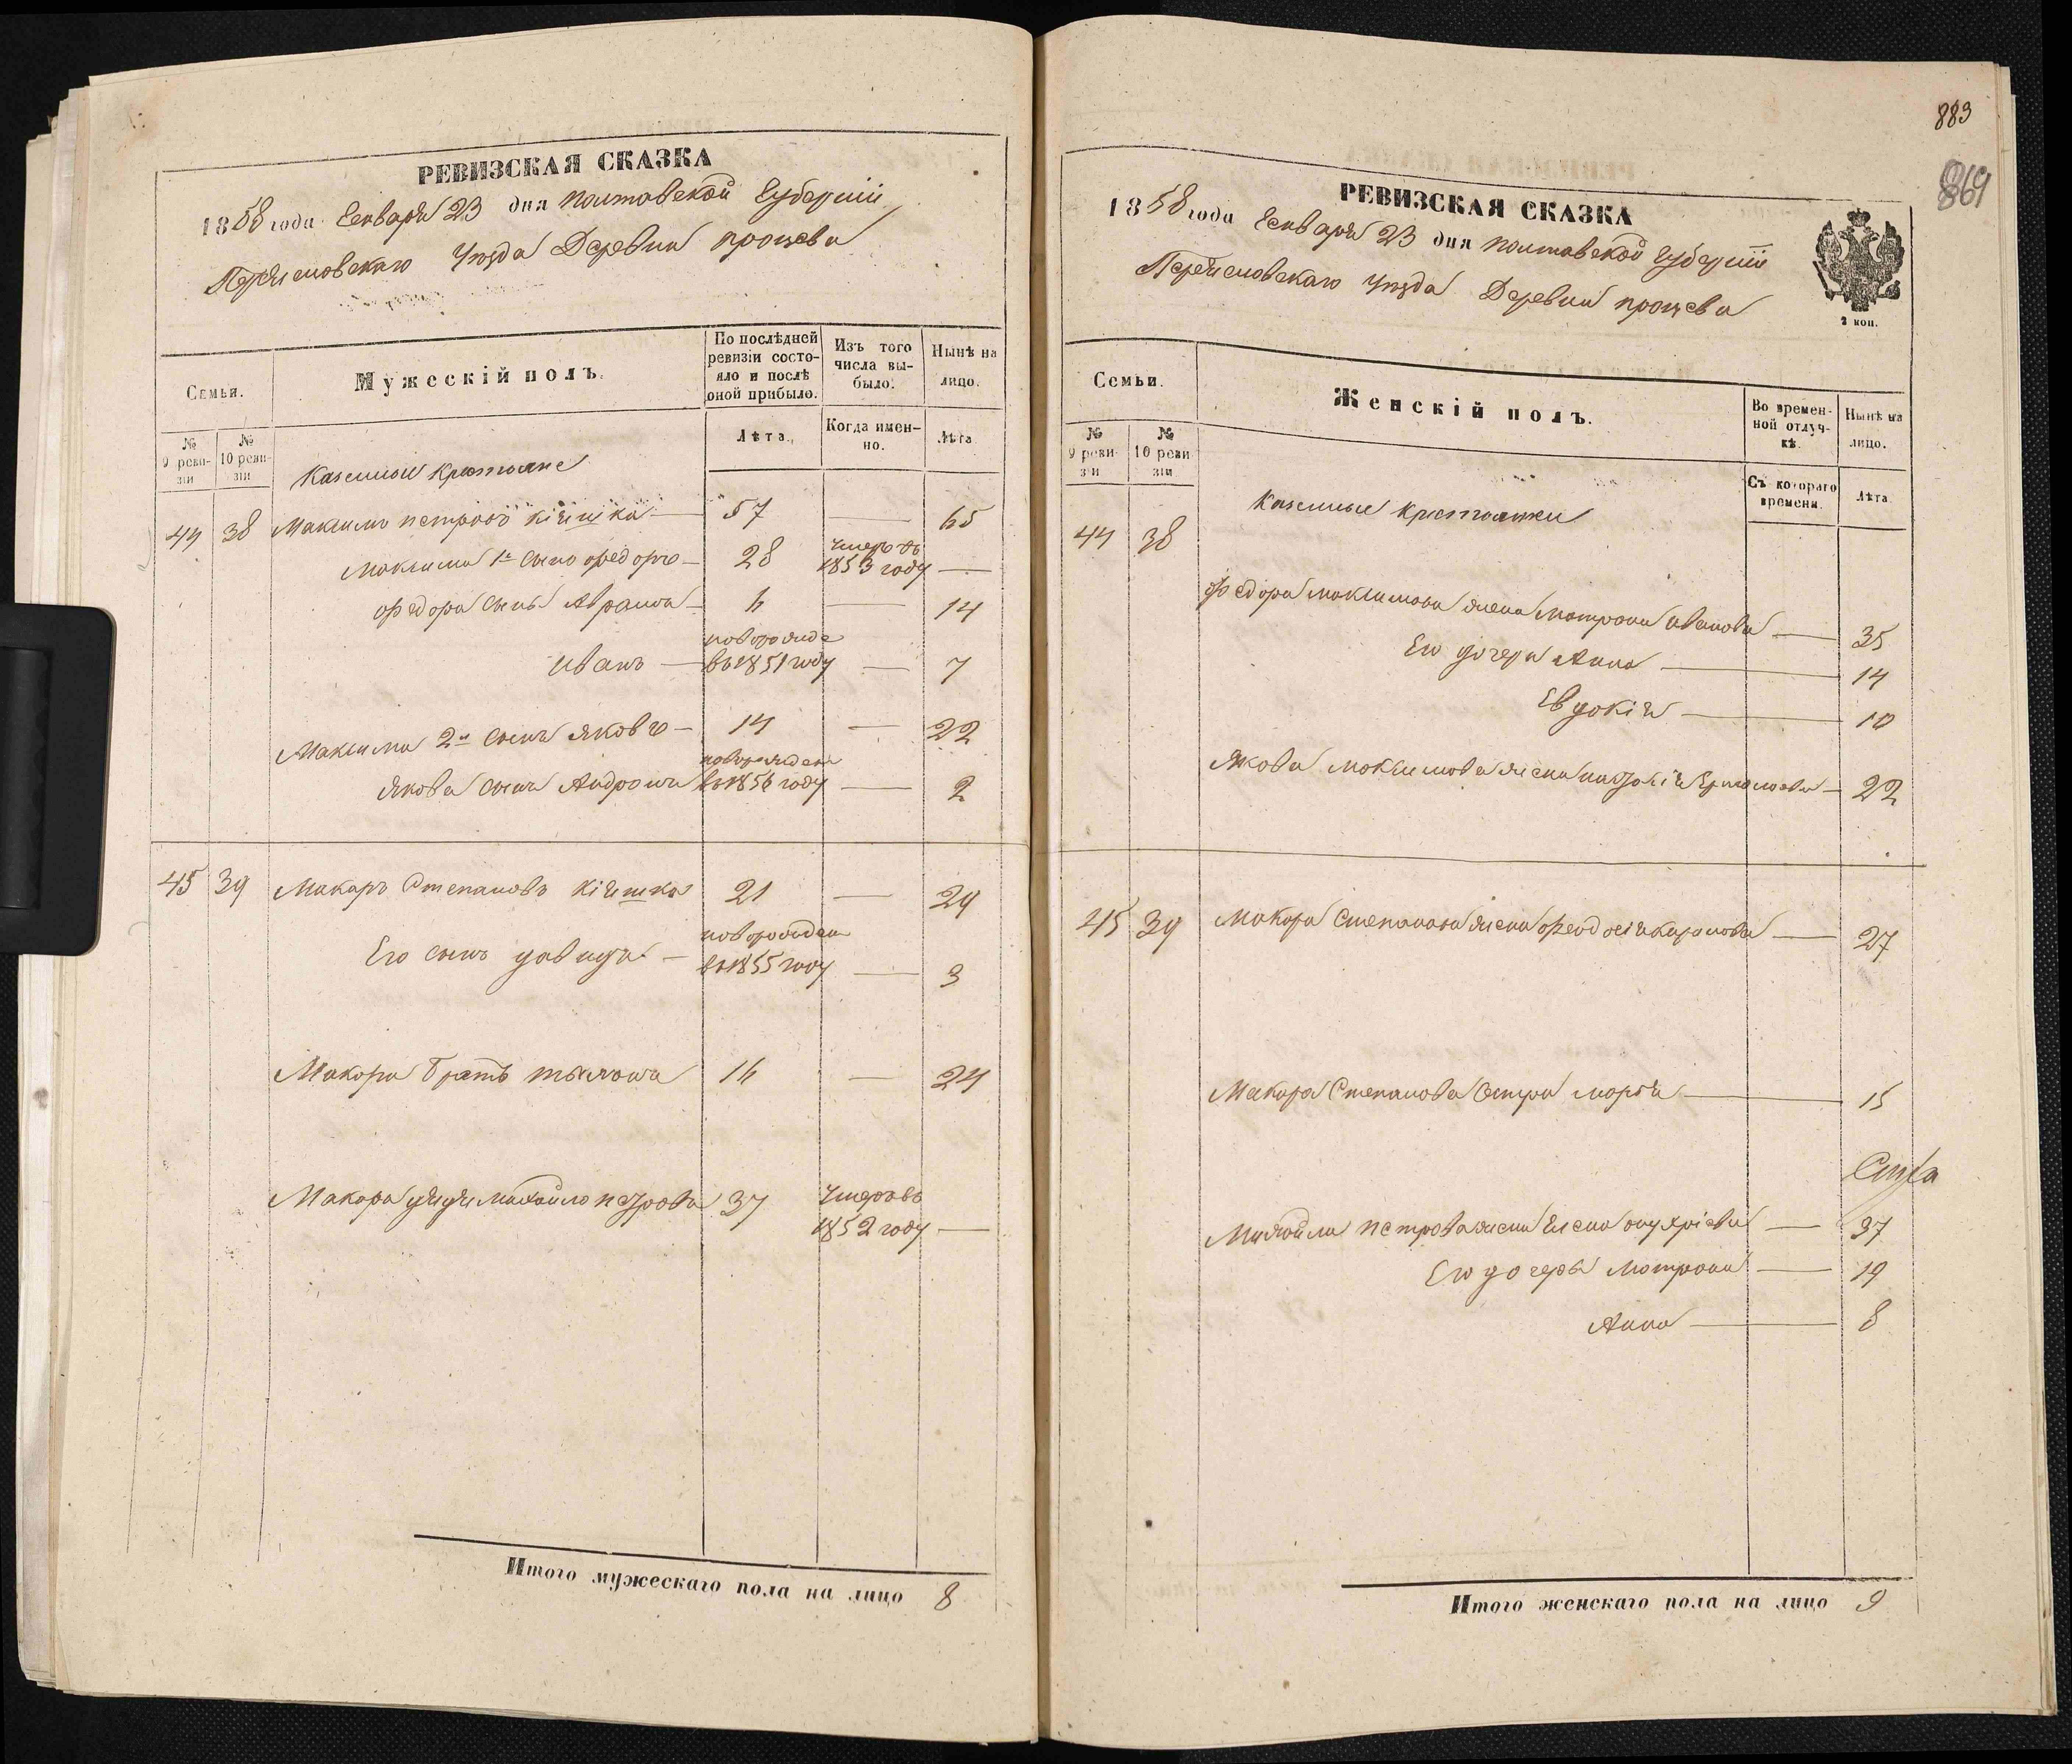 РЕВИЗСКАЯ СКАЗКА
1858 года Генваря 23 дня Полтавской Губерніи
Переясловскаго Уезда Деревни Процева
Семьи.
Мужескій полъ.
По послѣдней ревизіи состояло и послѣ оной прибыло.
Изъ того числа вы-было.
Нынѣ на лицо.
№ 9 реви-зіи
№ 10 реви-зіи
Лѣта.
Когда имен-но.
Лѣта.
Казенные крестьяне
44 38 Максимъ Петровъ Кіяшка — 57 — 65
Максима 1й сынъ Федоръ — 28 Умеръ въ 1853 году —
Федора сынъ Аврамъ — 6 — 14
Иванъ — новорожде въ 1851 году — 7
Максима 2й сынъ Яковъ — 14 — 22
Якова сынъ Андронъ новорожден въ 1856 году — 2
45 39 Макаръ Степановъ Кіяшка 21 — 29
Его сынъ Давидъ — новорожден въ 1855 году — 3
Макара братъ 16 — 24
Макара дядя Михайло Петровъ 37 Умеръ въ 1852 году —
Итого мужескаго пола на лицо 8
883
869
РЕВИЗСКАЯ СКАЗКА
1858 года Генваря 23 дня Полтавской Губерніи
Переясловскаго Уезда Деревни Процева
2 коп.
Семьи.
Женскій полъ.
Во времен-ной отлуч-кѣ.
Нынѣ на лицо.
№ 9 реви-зіи
№ 10 реви-зіи
Съ котораго времени.
Лѣта.
Казенные крестьянки
44 38
Федора Максимова жена Матрона Иванова — 35
Его дочери Анна — 14
Евдокія — 10
Якова Максимова жена — 22
45 39 Макара Степанова жена Феодосія — 27
Макара Степанова сестра Марія — 15
Михайла Петрова жена Елена — 37
Его дочери Матрона — 19
Анна — 8
Итого женскаго пола на лицо 9